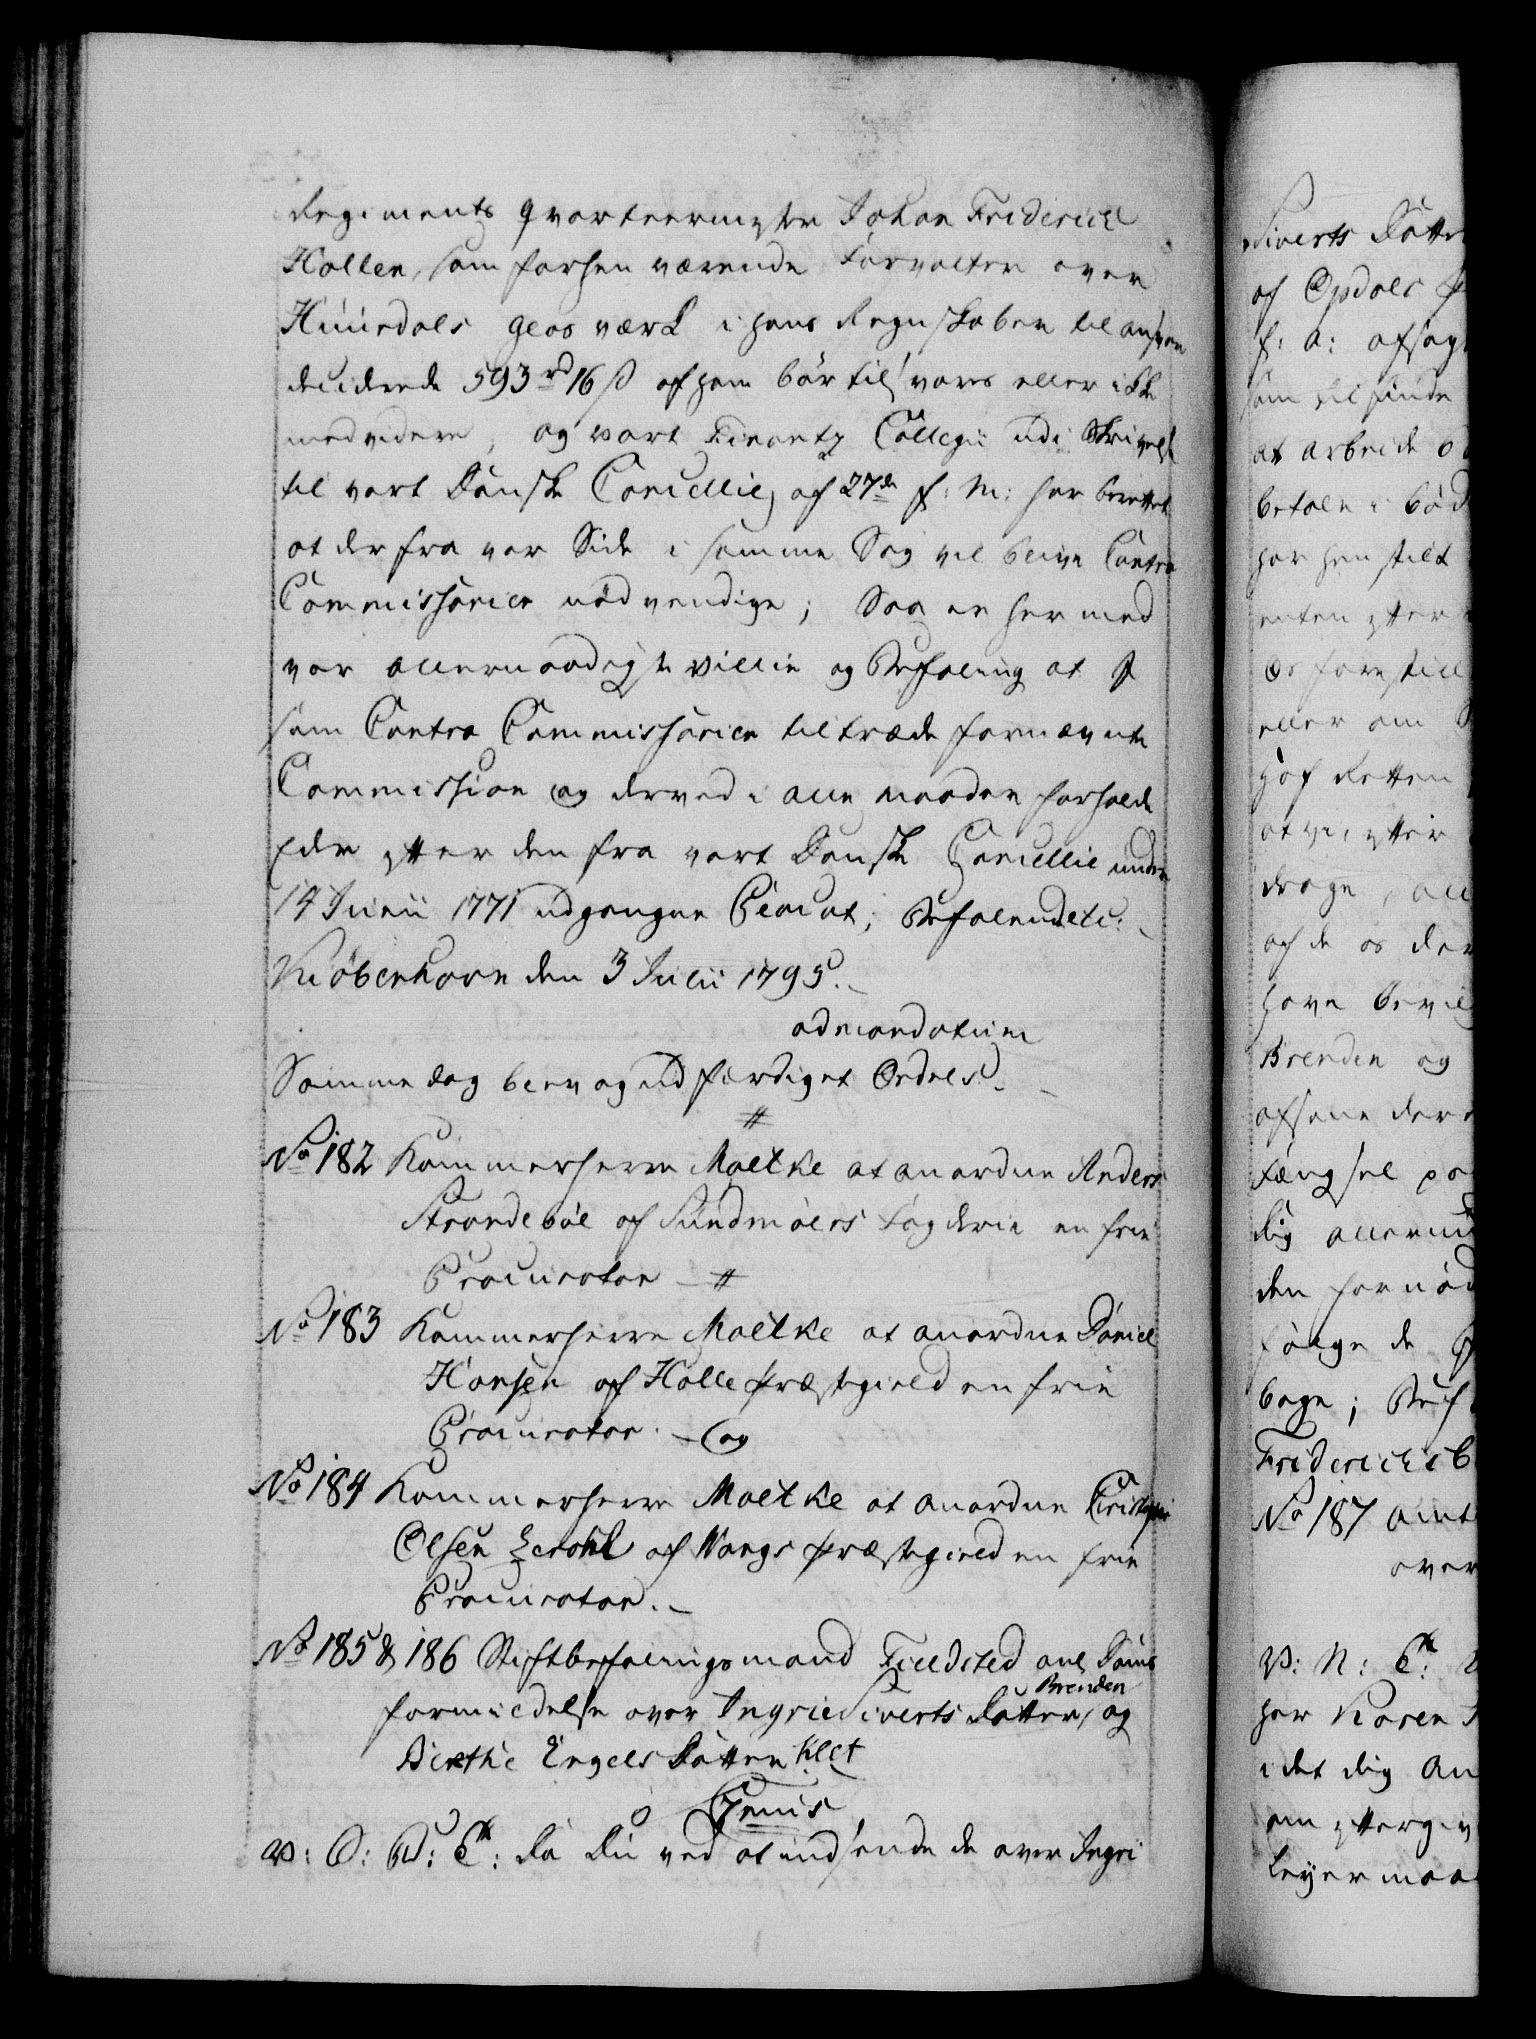 Regiments qvarteermester Johan Friderich
Hallen, som forhen værende Forvalter over
Huurdals Glas værk i hans Regnskaber til ansvar
deciderede 593 rd 16 s af ham bør tilsvares eller ikke
med videre, og vort Finantz Collegii udi Skrivelse
til vort Danske Cancellie af 27de f: M: har berettet
at der fra vor Side i samme Sag vil blive Contra
Commissarier nødvendige; Saa er her med
vor allernaadigste Villie og Befaling at I
som Contra Commissarier tiltræde fornævnte
Commission og derved i alle maader forholde
Eder efter den fra vort Danske Cancellie under
14 Junii 1771 udgangne Placat; Befalendetc:
Kiøbenhavn den 3 Julii 1795.
admandatum
Samme dag blev og udfærdiget Ordres.
#
No 182 Kammerherre Moltke at anordne Anders
Strandebøe af Sundmøers Fogderie en frie
Procurator #
No 183 Kammerherre Moltke at anordne Daniel
Hansen af Holle Præstegield en frie
Procurator. og
No 184 Kammerherre Moltke at anordne Christopher
Olsen af Vangs Præstegield en frie
Procurator.
No 185 & 186 Stiftbefalingsmand Fieldsted anl Doms
formildelse over Ingrie Siverts Datter Brenden, og
Birthe Engels Datter Klet
Genis
V: O: P: T: Da Du ved at indsende de over Ingri
Siverts Datte
af Opdals P
f: A: afsagt
som til finde
at arbeide
betale i bød
har hen stilt
enten efter
os forestill
eller om
Hof Retten
at vi, efter
drage, all
af de os der
have bevil
Brenden og
afsone der
Fængsel pa
dig allernaa
den fornød
følge de
bage; Bef
Friderichsb
No 187 Amt
over
V: N: T:
har Karen
i det dig An
om eftergiv
Leyermaa